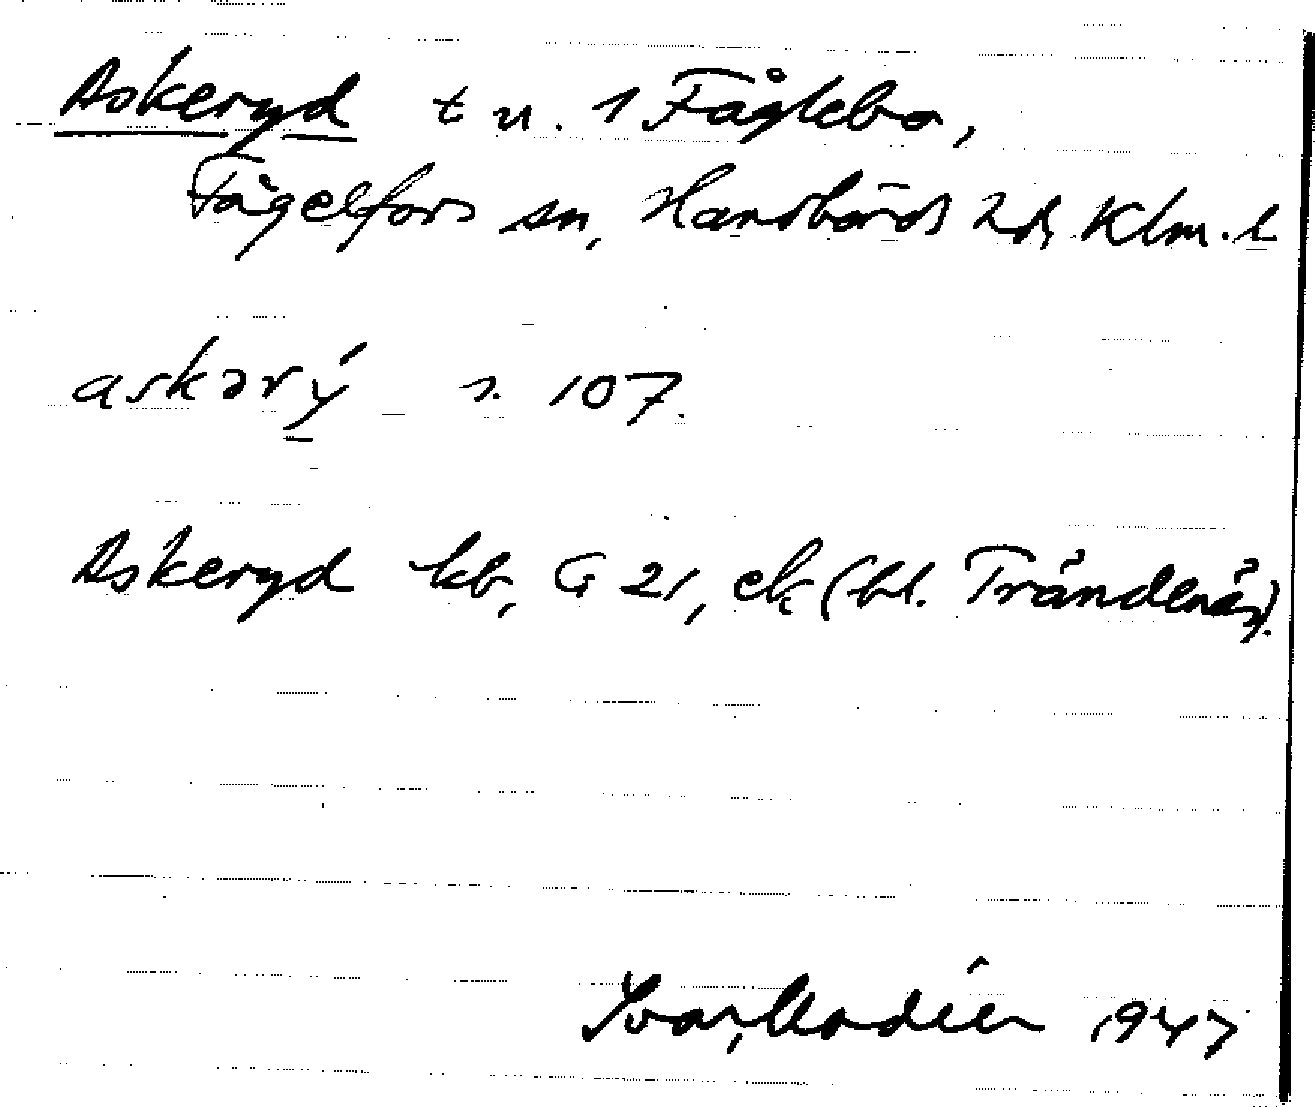 Askeryd t u. 1 Fåglebo,
Fågelfors sn, Handbörds hd, Klm. l
askərý s. 107.
Askeryd kb, G 21, ek (bl. Trändenäs).
Ivar Modéer 1947